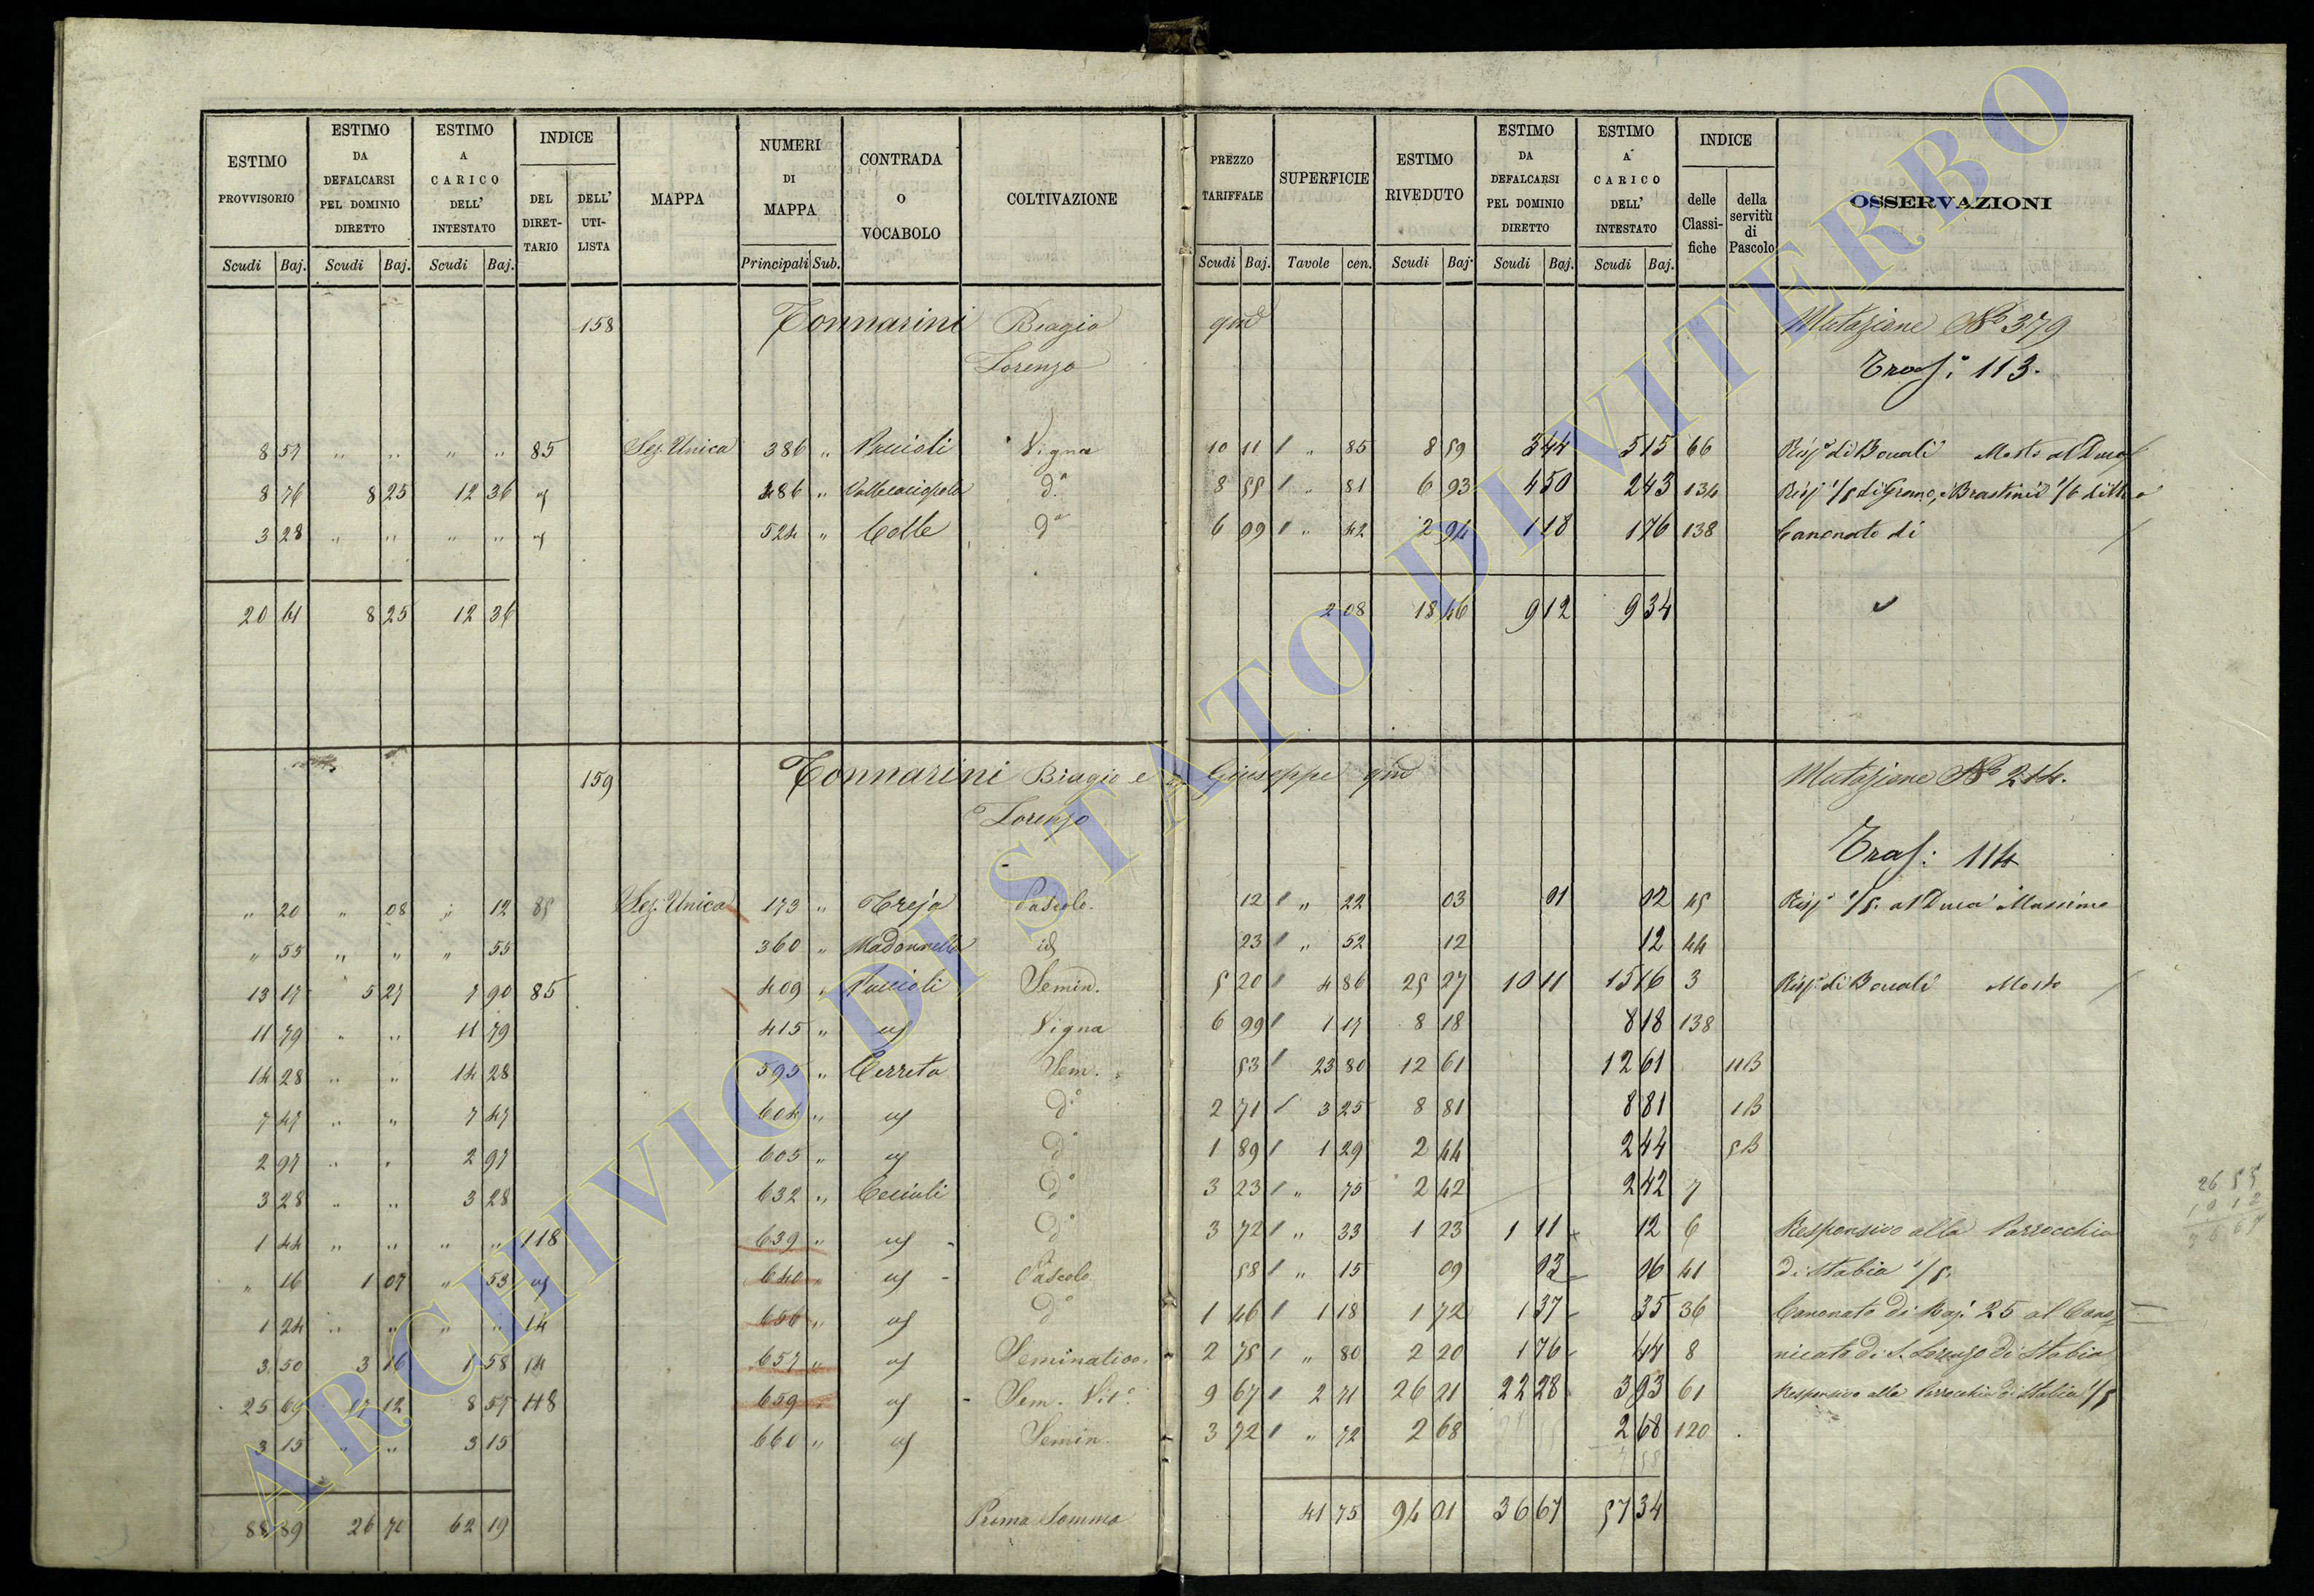 ESTIMO PROVVISORIO | ESTIMO DA DEFALCARSI PEL DOMINIO DIRETTO | ESTIMO A CARICO DELL' INTESTATO | INDICE | MAPPA | NUMERI DI MAPPA | CONTRADA O VOCABOLO | COLTIVAZIONE | PREZZO TARIFFALE | SUPERFICIE | ESTIMO RIVEDUTO | ESTIMO DA DEFALCARSI PEL DOMINIO DIRETTO | ESTIMO A CARICO DELL' INTESTATO | INDICE | OSSERVAZIONI
DEL DIRETTARIO | DELL' UTILISTA | delle Classifiche | della servitù di Pascolo
Scudi | Baj. | Scudi | Baj. | Scudi | Baj. | Principali | Sub. | Scudi | Baj. | Tavole | cen. | Scudi | Baj. | Scudi | Baj. | Scudi | Baj.
158 Tonnarini Biagio qm Mutazione N° 379
Lorenzo Trasf: 113.
8 57 " " " " 85 Sez. Unica 386 " Puccioli Vigna 10 11 " 85 8 59 3 44 5 15 66 Risp. di Bonali
8 76 8 25 12 36 486 " d.° 8 55 " 81 6 93 4 50 2 43 134
3 28 " " " " 524 " Colle d° 6 99 " 42 2 94 1 18 1 76 138 Canonato di
20 61 8 25 12 36 2 08 18 46 9 12 9 34
159 Tonnarini Biagio e Giuseppe qm Mutazione N° 214.
Lorenzo
Trasf: 114
" 20 " 08 " 12 85 Sez. Unica 173 " Treja Pascolo. 12 " 22 03 01 02 45 Risp. 1/5. al Duca Massimo
" 55 " " " 55 360 " Madonnella id 23 " 52 12 12 44
13 17 5 27 7 90 85 409 " Puccioli Semin. 5 20 4 86 25 27 10 11 15 16 3 Risp. di Bonali
11 79 " " 11 79 415 " Vigna 6 99 1 17 8 18 8 18 138
14 28 " " 14 28 595 " Cerreto Sem. 53 23 80 12 61 12 61 11B
7 47 " " 7 47 604 " d° 2 71 3 25 8 81 8 81 1B
2 97 " " 2 97 605 " d° 1 89 1 29 2 44 2 44 5B
3 28 " " 3 28 632 " d° 3 23 " 75 2 42 2 42 7
1 44 " " " " 118 639 " d° 3 72 " 33 1 23 1 11 12 6 Responsivo alla Parrocchia
" 16 1 07 " 53 640 " Pascolo 58 " 15 09 03 06 41 di Stabia 1/5.
1 24 " " " " 14 656 " d° 1 46 1 18 1 72 1 37 35 36 Canonato di Baj. 25 al Cano
3 50 3 16 1 58 14 657 " Seminativo. 2 75 " 80 2 20 1 76 44 8 nicato di S. Lorenzo di Stabia
25 69 12 8 57 118 659 " Sem. Vit° 9 67 2 71 26 21 22 28 3 93 61 Responsivo alla Parrocchia di Stabia 1/5
3 15 " " 3 15 660 " Semin. 3 72 " 72 2 68 2 68 120
88 89 26 70 62 19 Prima Somma 41 75 94 01 36 67 57 34
ARCHIVIO DI STATO DI VITERBO